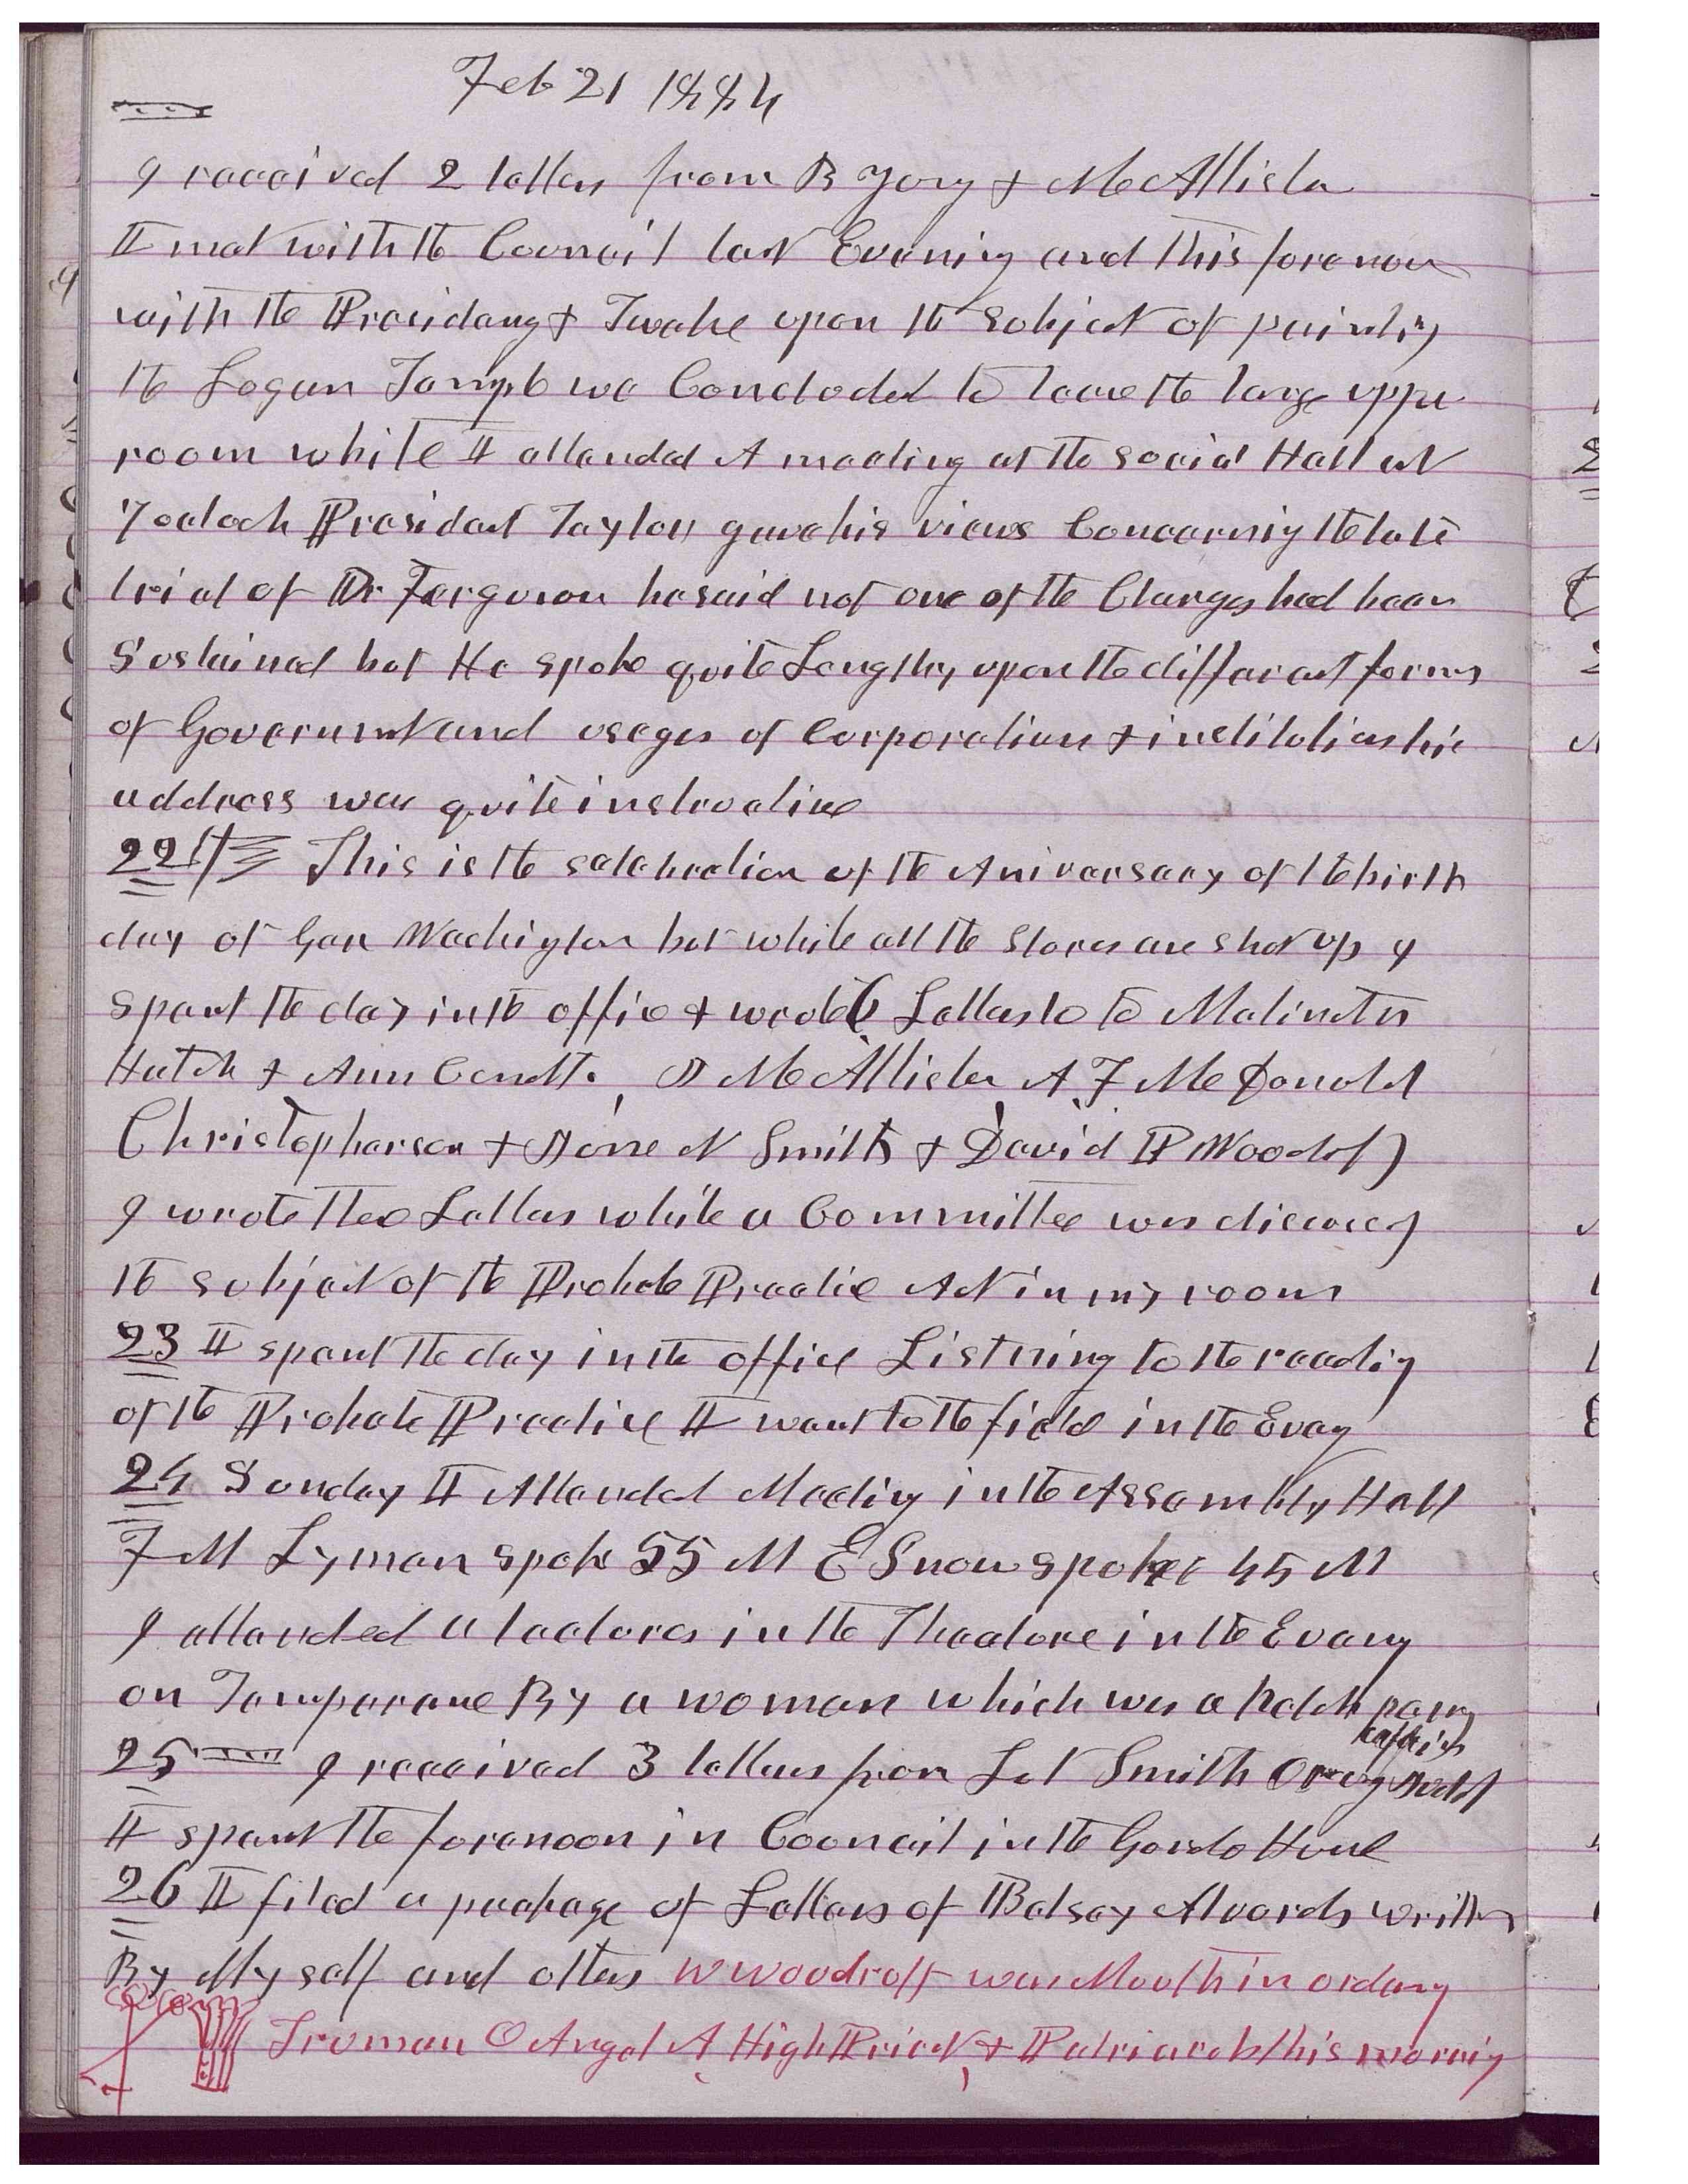 Feb 21 1884
I received 2 letters from B Young & McAllister
I met with the Council last Evening and this forenoon
with the Presidency & Twelve upon the subject of painting
the Logan Temple we Concluded to leave the large upper
room white I attended A meeting at the Social Hall at
7 oclock President Taylor gave his views Concerning the late
trial of Dr Ferguson he said not one of the Charges had been
Sustained but He spoke quite Lengthy upon the different forms
of Government and usages of Corporations & institutions his
address was quite instructive
22 This is the celebration of the Aniversary of the birth
day of Gen Washington but while all the stores are shut up I
spent the day in the office & wrote 6 Letters to to Malinda
Hatch & Ann D McAllister A F McDonald
Christopherson & Done N Smith & David P Woodruff
I wrote these Letters while a Committee was discussing
the subject of the Probate Practice Act in my room
23 I spent the day in the office Listning to the reading
of the Probate Practice I went to the field in the Evening
24 Sunday I Attended Meeting in the Assembly Hall
F M Lyman spoke 55 M E Snow spoke 45 M
I attended a lecture in the Theatore in the Evening
on Temperance By a woman which was a hotch potch
25 I received 3 letters from Lot Smith
I spent the forenoon in Council in the Gardo House
26 I filed a package of Letters of Betsey Alvords written
By Myself and others W Woodruff was Mouth in ordaing
Truman O Angel A High Priest & Patriarch this morning